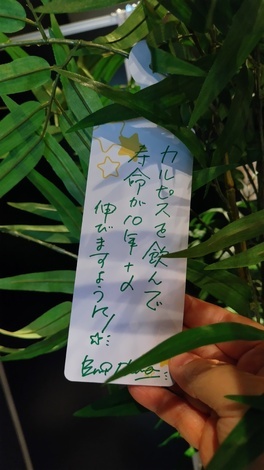 カルピスを飲んで
寿命が10年+α
伸びますように!☆